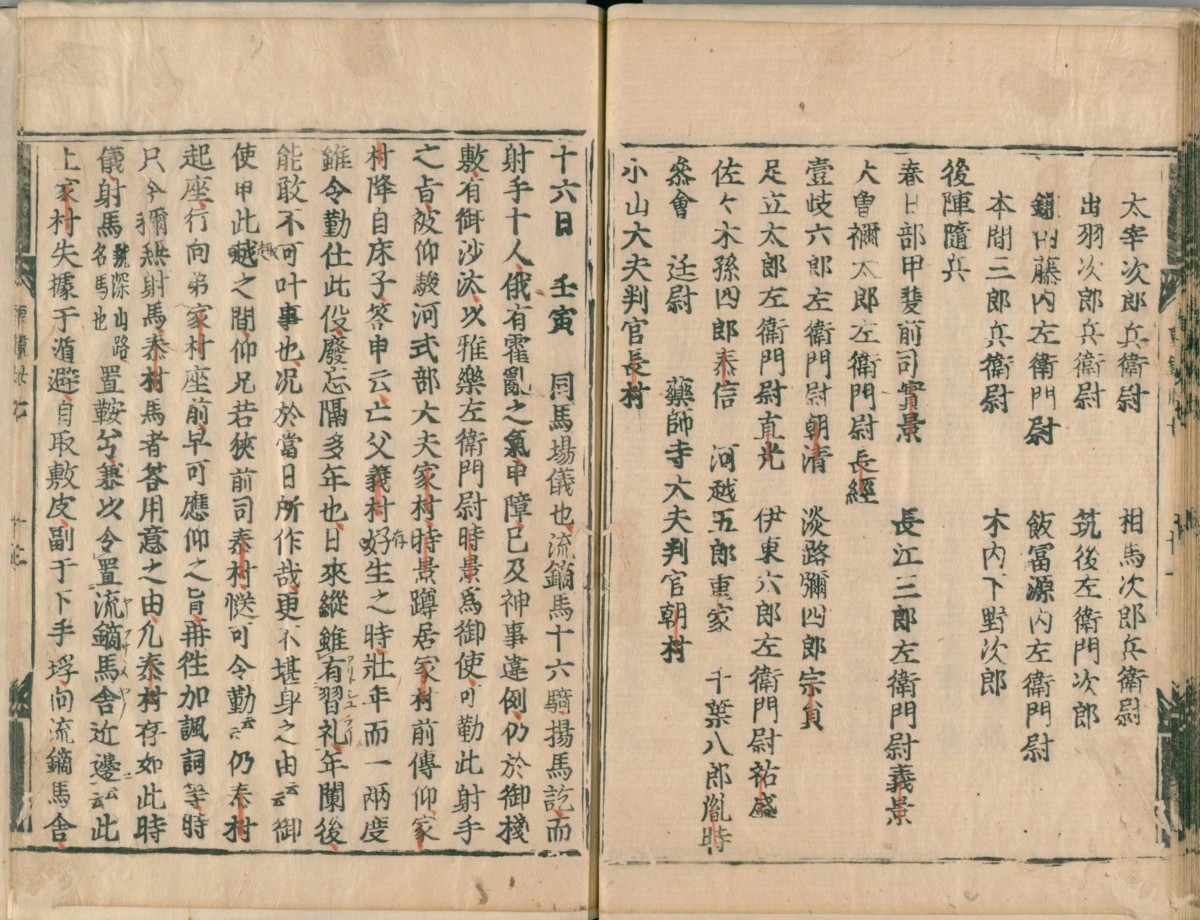 太宰次郎兵衛尉　相馬次郎兵衛尉
出羽次郎兵衛尉　筑後左衛門次郎
鎌田藤内左衛門尉　飯冨源内左衛門尉
本間三郎兵衛尉　木内下野次郎
後陣隨兵
春日部甲斐前司實景　長江三郎左衛門尉義景
大曽祢太郎左衛門尉長經
壹岐六郎左衛門尉朝清　淡路彌四郎宗員
足立太郎左衛門尉直光　伊東六郎左衛門尉祐盛
佐々木孫四郎泰信　河越五郎重家　千葉八郎胤時
叅會　廷尉　藥師寺大夫判官朝村
小山大夫判官長村
十六日　壬寅　同馬場儀也流鏑馬十六騎揚馬訖而
射手十人俄有霍亂之氣申障已及神事違例仍於御棧
敷有御沙汰以雅樂左衛門尉時景為御使可勤此射手
之旨被仰駿河式部大夫家村時景蹲居家村前傳仰家
村降自床子答申云亡父義村好存生之時壯年而一兩度
雖令勤仕此役廢忘隔多年也日來縱雖有習礼年闌後
能敢不可叶事也况於當日所作哉更不堪身之由云云御
使申此越趣之間仰兄若狹前司泰村慥可令勤云云仍泰村
起座行向弟家村座前早可應仰之旨再徃加諷詞等時
只令獮無射馬泰村馬者答用意之由凡泰村存如此時
儀射馬號深山路名馬也置鞍兮兼以令置流鏑馬舎近邊云云此
上家村失據于遁避自取敷皮副于下手埒向流鏑馬舎